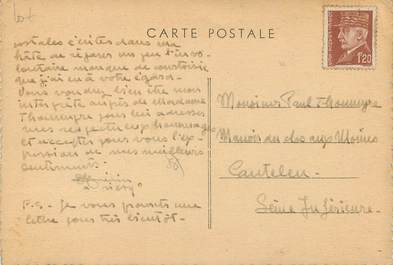 CARTE POSTALE
1f20
postales écrites dans ma
hâte de réparer un peu l'invo-
lontaire manque de courtoisie
que j'ai eu à votre égard.
Vous voudrez bien être mon
interprète auprès de Madame
pour lui adresser
mes respectueux hommages
et acceptez pour vous l'ex-
pression de mes meilleurs
sentiments.
P.S. - Je vous posterai une
lettre pour très bientôt -
Monsieur Paul
Manoir du clos aux Moines
Canteleu
Seine Inférieure